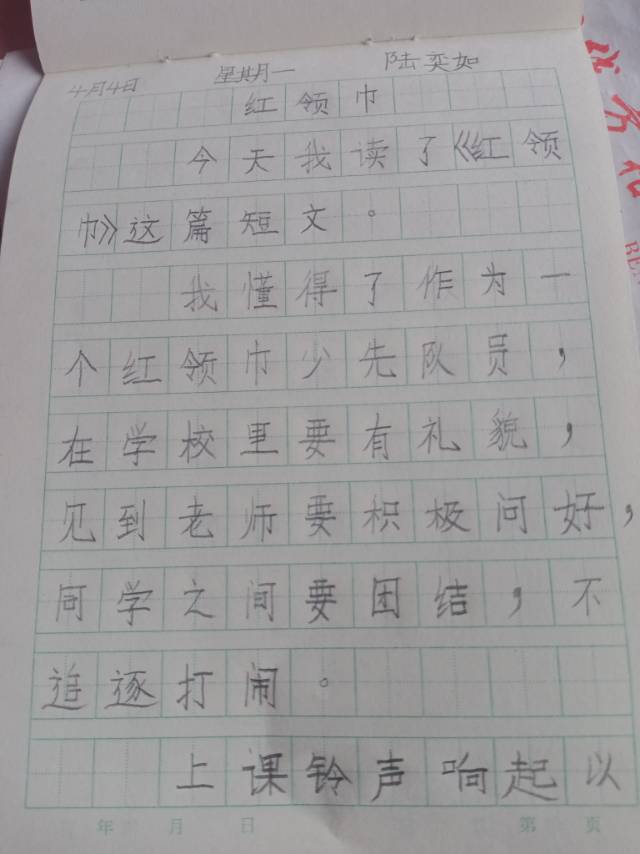 4月4日 星期一 陆奕如
红领巾
今天我读了《红领
巾》这篇短文。
我懂得了作为一
个红领巾少先队员，
在学校里要有礼貌，
见到老师要积极问好，
同学之间要团结，不
追逐打闹。
上课铃声响起以
年 月 日 第 页